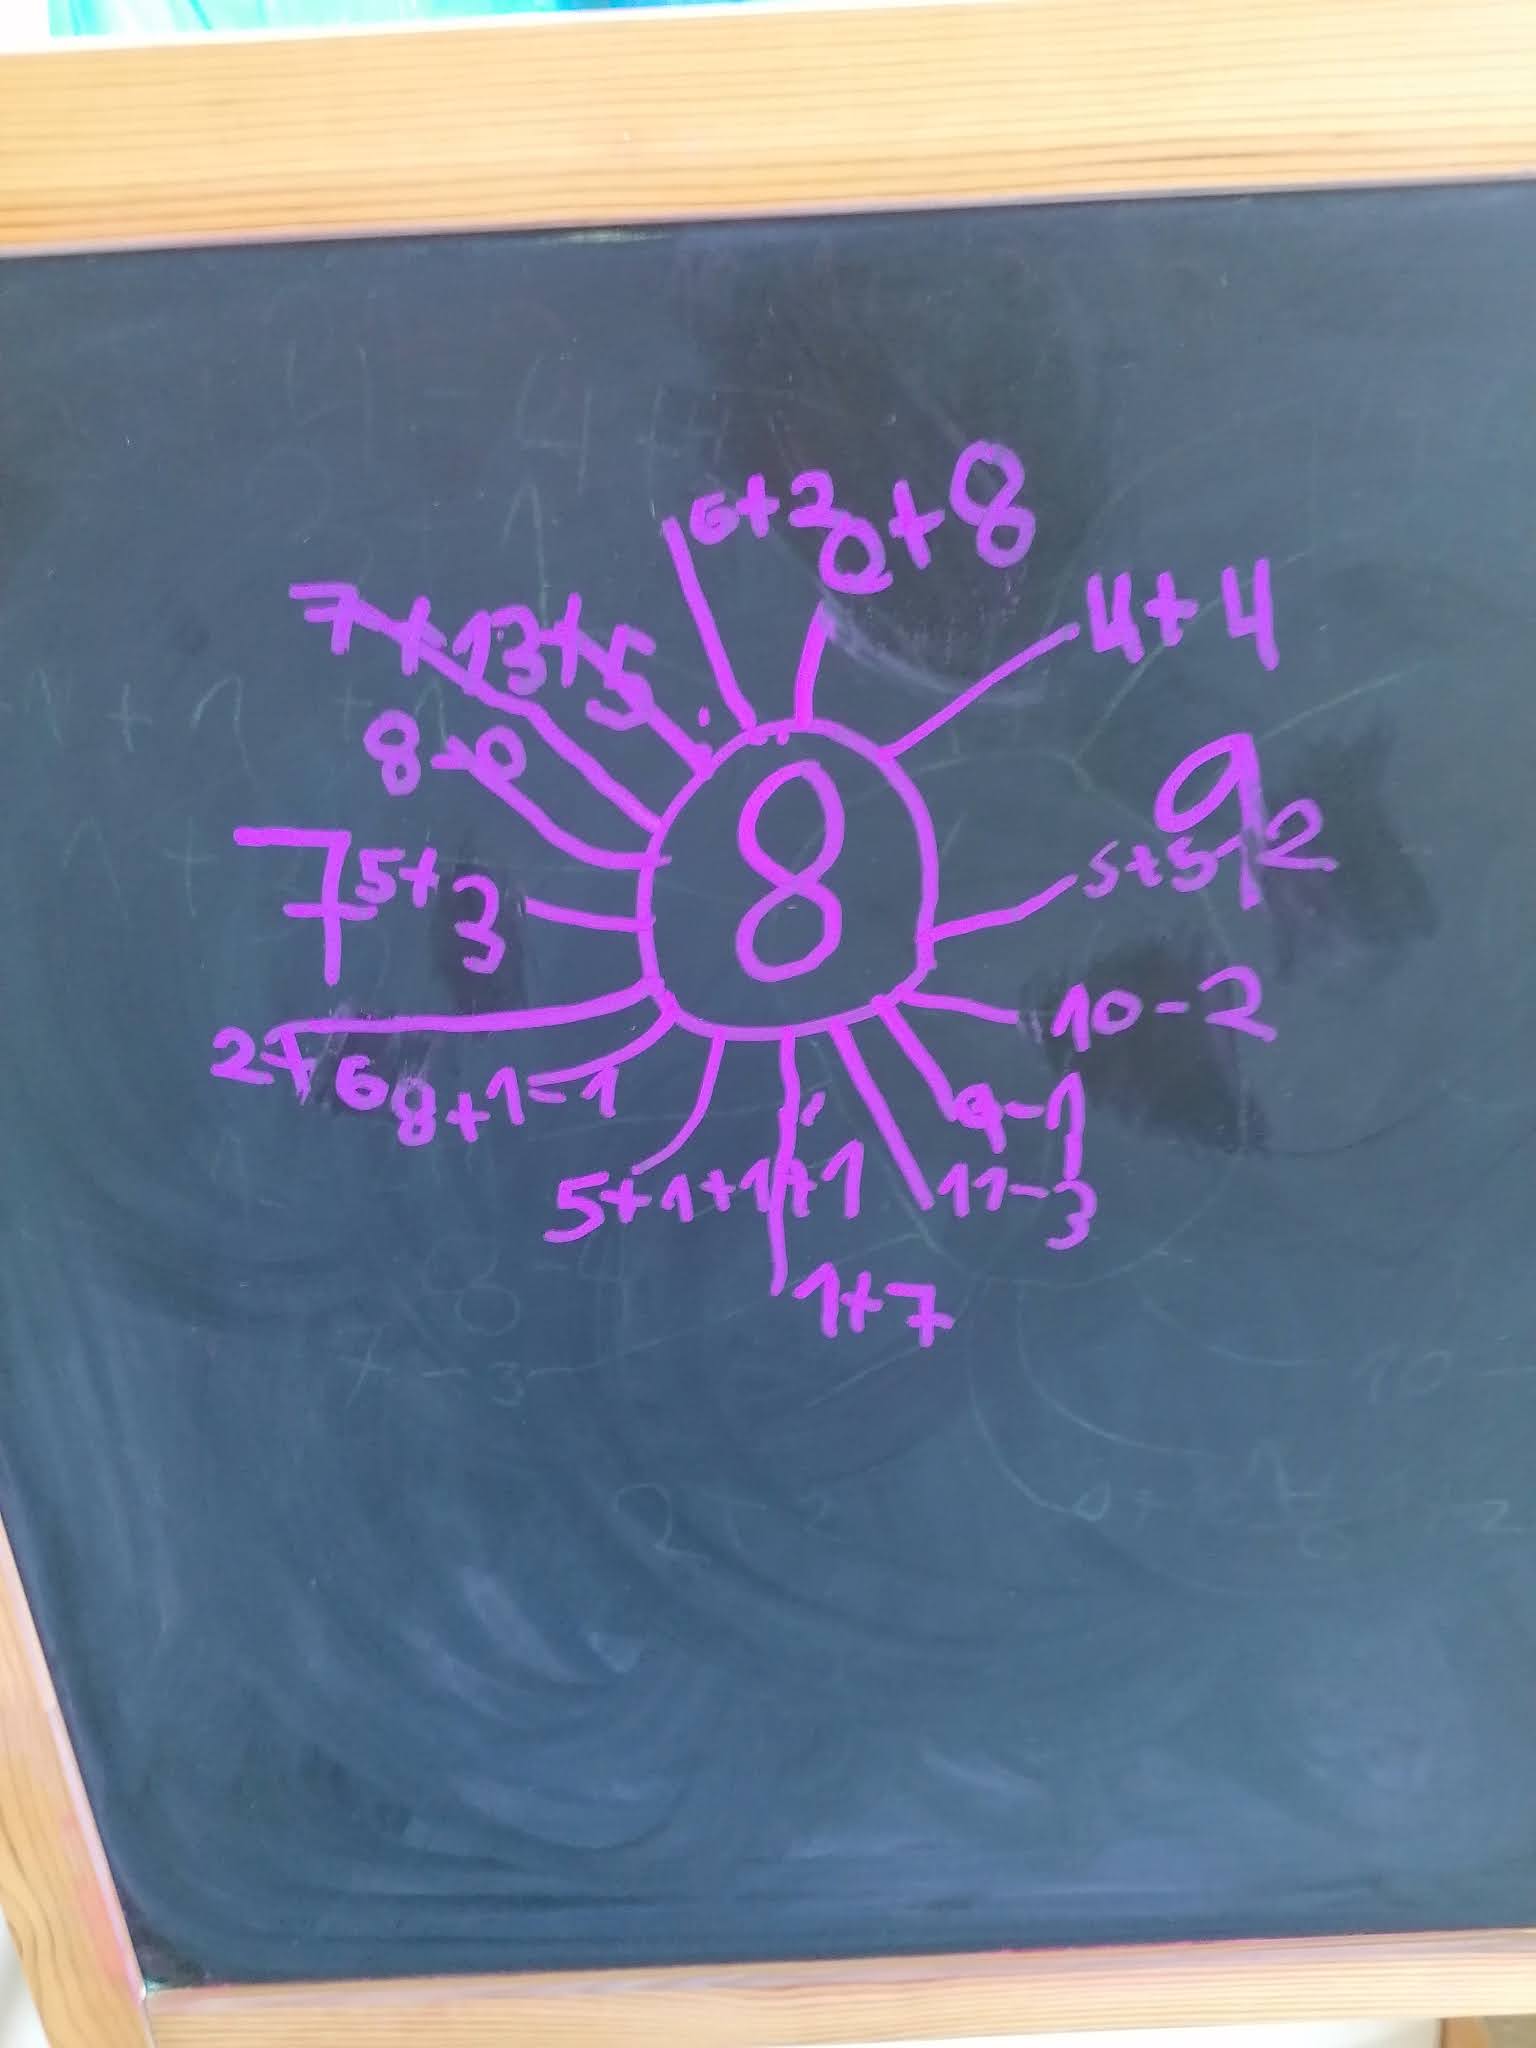 6+2
0+8
4+4
7+1
3+5
8-0
8
9
5+5-2
7
5+3
10-2
2+6
8+1-1
9-1
5+1+1+1
11-3
1+7